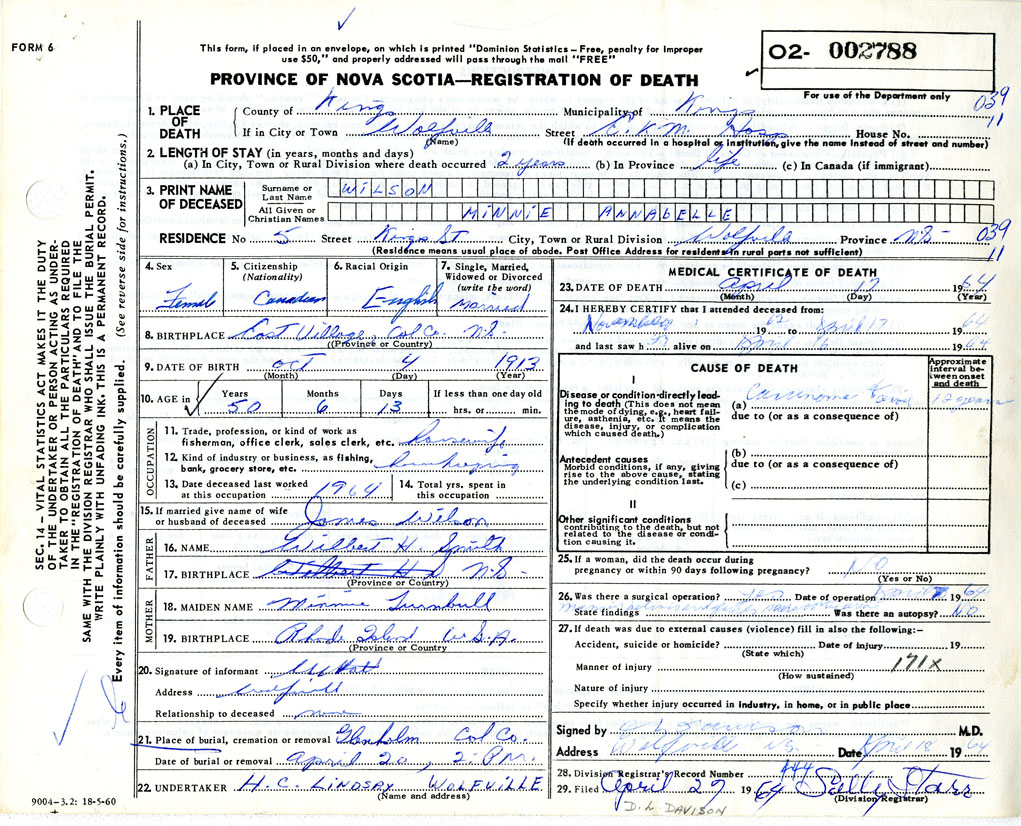 FORM 6
This form, if placed in an envelope, on which is printed "Dominion Statistics – Free, penalty for improper
use $50," and properly addressed will pass through the mail "FREE"
PROVINCE OF NOVA SCOTIA—REGISTRATION OF DEATH
O2- 002788
For use of the Department only
039
11
SEC. 14 – VITAL STATISTICS ACT MAKES IT THE DUTY
OF THE UNDERTAKER OR PERSON ACTING AS UNDER-
TAKER TO OBTAIN ALL THE PARTICULARS REQUIRED
IN THE "REGISTRATION OF DEATH" AND TO FILE THE
SAME WITH THE DIVISION REGISTRAR WHO SHALL ISSUE THE BURIAL PERMIT.
WRITE PLAINLY WITH UNFADING INK. THIS IS A PERMANENT RECORD.
Every item of information should be carefully supplied. (See reverse side for instructions.)
1. PLACE OF DEATH County of Kings Municipality of Kings
If in City or Town Wolfville Street E.K.M. Hosp House No.
(Name) (If death occurred in a hospital or institution, give the name instead of street and number)
2. LENGTH OF STAY (in years, months and days)
(a) In City, Town or Rural Division where death occurred 2 years (b) In Province life (c) In Canada (if immigrant)
3. PRINT NAME OF DECEASED Surname or Last Name WILSON
All Given or Christian Names MINNIE ANNABELLE
RESIDENCE No 5 Street Kings St. City, Town or Rural Division Wolfville Province N.S. 039
(Residence means usual place of abode. Post Office Address for residents in rural parts not sufficient) 11
4. Sex Female
5. Citizenship (Nationality) Canadian
6. Racial Origin English
7. Single, Married, Widowed or Divorced (write the word) Married
8. BIRTHPLACE East Village, Col Co. N.S.
(Province or Country)
9. DATE OF BIRTH Oct 4 1913
(Month) (Day) (Year)
10. AGE in Years Months Days If less than one day old
50 6 13 hrs. or min.
OCCUPATION
11. Trade, profession, or kind of work as
fisherman, office clerk, sales clerk, etc. Housewife
12. Kind of industry or business, as fishing,
bank, grocery store, etc. housekeeping
13. Date deceased last worked at this occupation 1964 14. Total yrs. spent in this occupation
15. If married give name of wife
or husband of deceased James Wilson
FATHER
16. NAME Gilbert H. Smith
17. BIRTHPLACE N.S.
(Province or Country)
MOTHER
18. MAIDEN NAME Minnie Turnbull
19. BIRTHPLACE Rhode Island U.S.A.
(Province or Country)
20. Signature of informant
Address Wolfville
Relationship to deceased none
21. Place of burial, cremation or removal Glenholm Col Co.
Date of burial or removal April 20, 2 P.M.
22. UNDERTAKER H.C. LINDSAY WOLFVILLE
(Name and address)
9004-3.2: 18-5-60
MEDICAL CERTIFICATE OF DEATH
23. DATE OF DEATH April 17 1964
(Month) (Day) (Year)
24. I HEREBY CERTIFY that I attended deceased from:
November 1962 to April 17 1964
and last saw h er alive on April 16 1964
CAUSE OF DEATH
Approximate interval between onset and death
I
Disease or condition directly lead-
ing to death (This does not mean
the mode of dying, e.g., heart fail-
ure, asthenia, etc. It means the
disease, injury, or complication
which caused death.)
(a) Carcinoma 12 years
due to (or as a consequence of)
Antecedent causes
Morbid conditions, if any, giving
rise to the above cause, stating
the underlying condition last.
(b)
due to (or as a consequence of)
(c)
II
Other significant conditions
contributing to the death, but not
related to the disease or condi-
tion causing it.
25. If a woman, did the death occur during
pregnancy or within 90 days following pregnancy? NO
(Yes or No)
26. Was there a surgical operation? yes Date of operation 1964
State findings Was there an autopsy? NO
27. If death was due to external causes (violence) fill in also the following:–
Accident, suicide or homicide? Date of injury 19
(State which)
Manner of injury 171X
(How sustained)
Nature of injury
Specify whether injury occurred in industry, in home, or in public place
Signed by M.D.
Address Wolfville N.S. Date April 18 1964
28. Division Registrar's Record Number 444
29. Filed April 27 1964 Sally Starr
(Division Registrar)
D. L. DAVISON